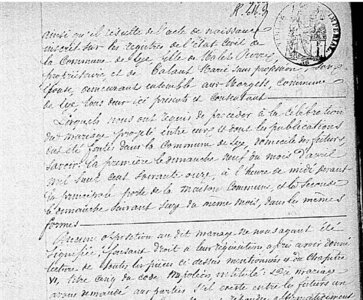 ainsi qu'il résulte de l'acte de naissance
inscrit sur les registres de l'état civil de
la Commune de Sye, fille de
propriétaire et de Marie sans profession
demeurant ensemble aux Commune
de Sye tous deux ici présents et Consentant
Lesquels nous ont requis de procéder à la Célébration
du mariage projeté entre eux et dont les publications
ont été faites dans la Commune de Sye, domicile des futurs
savoir la première le dimanche neuf du mois d'avril
mil huit cent soixante onze, à l'heure de midi devant
la principale porte de la maison Commune, et la Seconde
le dimanche suivant seize du même mois, dans les mêmes
formes
Aucune opposition au dit mariage ne nous ayant été
signifiée, faisant droit à leur réquisition après avoir donné
lecture de toutes les pièces ci dessus mentionnées et du Chapitre
VI, titre cinq du code Napoléon intitulé Du mariage
avons demandé aux parties s'il existe entre les futurs un